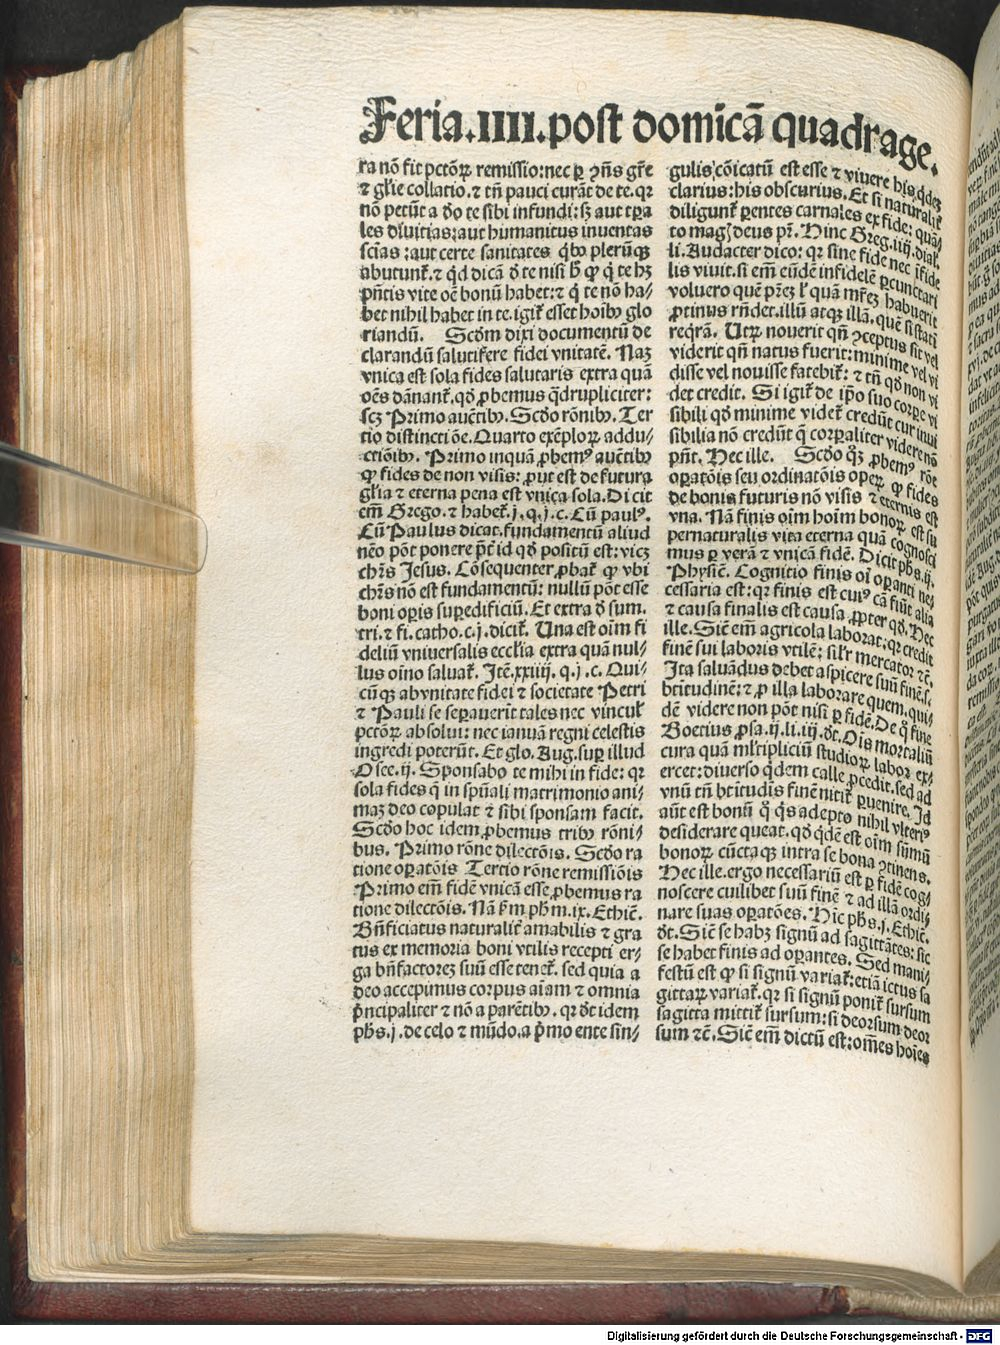 Feria.IIII.post domicā quadrage.
ra nō fit pctōꝝ remissio:nec ꝑ ꝯñs gr̄e
⁊ gl̄ie collatio.⁊ tñ pauci curāt de te.qꝛ
nō petūt a ꝺ̄o te sibi infundi:sꝫ aut tꝑa
les diuitias:aut humanitus inuentas
scīas:aut certe sanitates q̇bꝰ pleꝛūqꝫ
abutunt̄.⁊ qd̓ dicā ꝺ̄ te nisi hꝭ ꝙ q̇ te hꝫ
pn̄tis vite oē bonū habet:⁊ q̇ te nō ha/
bet nihil habet in te.igit̄ esset hoībꝰ glo
riandū. Scd̄m dixi documentū de
clarandū salutifere fidei vnitatē. Naꝫ
vnica est sola fides salutaris extra quā
oēs dānant̄.qd̓ ꝓbemus q̇drupliciter:
scꝫ Primo auc̄tibꝰ.Scd̓o rōnibꝰ.Ter
tio distincti ōe.Quarto exēploꝝ addu/
ctiōibꝰ. Primo inquā ꝓbemꝰ auc̄tibꝰ
ꝙ fides de non visis: ꝓut est de futura
gl̄ia ⁊ eterna pena est vnica sola.Di cit
em̄ Grego.⁊ habet̄.j.q.j.c.Cū paulꝰ.
Cū Paulus dicat.fundamentū aliud
nēo pōt ponere p̄t̄ id qd̓ positū est:vicꝫ
chr̄s Jesus. Cōsequenter ꝓbat̄ ꝙ vbi
chr̄s nō est fundamentū: nullū pōt esse
boni oꝑis suꝑedificiū.Et extra ꝺ̄ sum.
tri.⁊ fi.catho.c.j.dicit̄. Una est oīm fi
deliū vniuersalis eccl̄ia extra quā nul/
lus oīno saluat̄. Jtē.xxiiij.q.j.c.Qui/
cūqꝫ ab vnitate fidei ⁊ societate Petri
⁊ Pauli se seꝑauerīt tales nec vincul̄
pctōꝝ absolui: nec ianuā regni celestis
ingredi poterūt. Et glo.Aug.suꝑ illud
Osee.ij. Sponsabo te mihi in fide: qꝛ
sola fides q̄ in spūali matrimonio ani/
maꝫ deo copulat ⁊ sibi sponsam facit.
Scd̓o hoc idem ꝓbemus tribꝰ rōni/
bus. Primo rōne dilectōis. Scd̓o ra
tione oꝑatōis Tertio rōne remissiōis
Primo em̄ fidē vnicā esse ꝓbemus ra
tione dilectōis. Nā ẜm ph̄m.ix.Ethic̄.
Bn̄ficiatus naturalit̄ amabilis ⁊ gra
tus ex memoria boni vtilis recepti er/
ga bn̄factoreꝫ suū esse tenet̄. sed quia a
deo accepimus corpus aīam ⁊ omnia
p̄ncipaliter ⁊ nō a parētibꝰ.qꝛ ꝺ̄t idem
ph̄s.j.de celo ⁊ mūdo.a p̄mo ente sin/
gulis cōicatū est esse ⁊ viuere his.qdeꝫ
clarius:his obscurius.Et si naturalit̄
diligunt̄ ꝑentes carnales ex fide: quā/
to magꝭ deus pr̄. Hinc Greg.iiij.dial̄.
li.Audacter dico: qꝛ sine fide nec īfide
lis viuit.si em̄ eūdē infidelē ꝑcunctari
voluero quē pr̄eꝫ l̄ quā mr̄eꝫ habuerit
ꝓtinus rn̄det.illū atqꝫ illā.quē si stati
reqr̄ā. Utꝝ nouerit qn̄ ꝯceptus sit vel
viderit qn̄ natus fuerit:minime vel vi
disse vel nouisse fatebit̄: ⁊ tn̄ qd̓ non vi
det credit. Si igit̄ de ip̄o suo corꝑe vi
sibili qd̓ minime videt̄ credūt cur inui
sibilia nō credūt q̄ corꝑaliter videre nō
pn̄t. Hec ille. Scd̓o qꝫ ꝓbemꝰ rōe
oꝑatōis seu ordinatōis oꝑeꝝ ꝙ fides
de bonis futuris nō visis ⁊ eternis est
vna. Nā finis oīm hoīm bonoꝝ est su
pernaturalis vita eterna quā cognosci
mus ꝑ verā ⁊ vnicā fidē. Dicit ph̄s.ij.
Physic̄. Cognitio finis oī oꝑanti ne/
cessaria est: qꝛ finis est cuiꝰ cā fiūt alia
⁊ causa finalis est causa ꝓpter qd̓. Hec
ille.Sic̄ em̄ agricola laborat: qꝛ credit
finē sui laboris vtilē: sil̄r mercator ⁊c̄.
Jta saluādus debet aspicere suū finē.s.
btitudinē: ⁊ ꝓ illa laborare quem.qui/
dē videre non pōt nisi ꝑ fidē.De q̊ fine
Boetius ꝓsa.ij.li.iij.ꝺ̄t.Ois mortaliū
cura quā ml̄tipliciū studioꝝ labor ex/
ercet:diuerso q̇dem calle ꝓcedit.sed ad
vnū tn̄ btitudis finē nitit̄ ꝑuenire. Jd
aūt est bonū q̊ q̇s adepto nihil vlteriꝰ
desiderare queat.qd̓ q̇dē est oīm sūmū
bonoꝝ cūctaqꝫ intra se bona ꝯtinens.
Hec ille.ergo necessariū est ꝑ fidē cog/
noscere cuilibet suū finē ⁊ ad illā ordi/
nare suas oꝑatōes. Hic ph̄s.j.Ethic̄.
ꝺ̄t. Sic̄ se habꝫ signū ad sagittātes: sic
se habet finis ad oꝑantes. Sed mani/
festū est ꝙ si signū variat̄:etiā ictus sa
gittaꝝ variat̄.qꝛ si signū ponit̄ sursum
sagitta mittit̄ sursum:si deorsum deor
sum ⁊c̄. Sic̄ em̄ dictū est:omēs hoīes
Digitalisierung gefördert durch die Deutsche Forschungsgemeinschaft - DFG